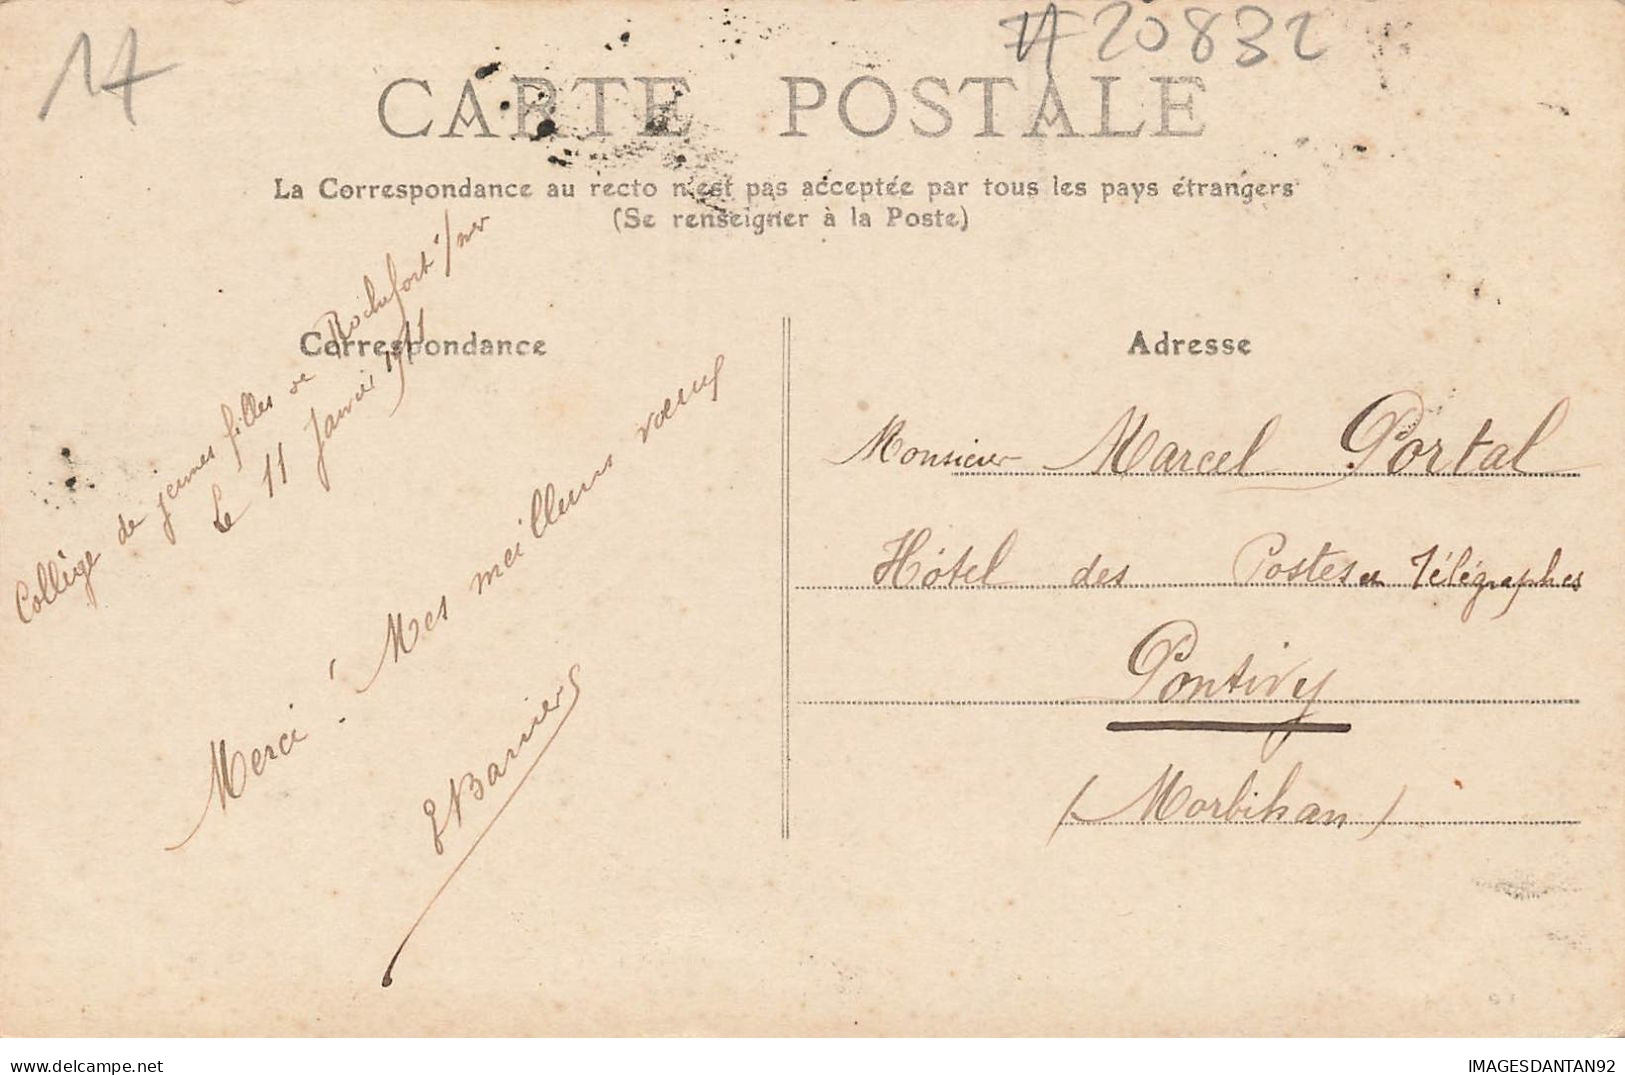 17
#20832
CARTE POSTALE
La Correspondance au recto n'est pas acceptée par tous les pays étrangers
(Se renseigner à la Poste)
Correspondance
Collège de jeunes filles de Rochefort s/mer
Le 11 Janvier 1911
Merci ! Mes meilleurs vœux
Adresse
Monsieur Marcel Portal
Hôtel des Postes et Télégraphes
Pontivy
(Morbihan)
delcampe.net
IMAGESDANTAN92